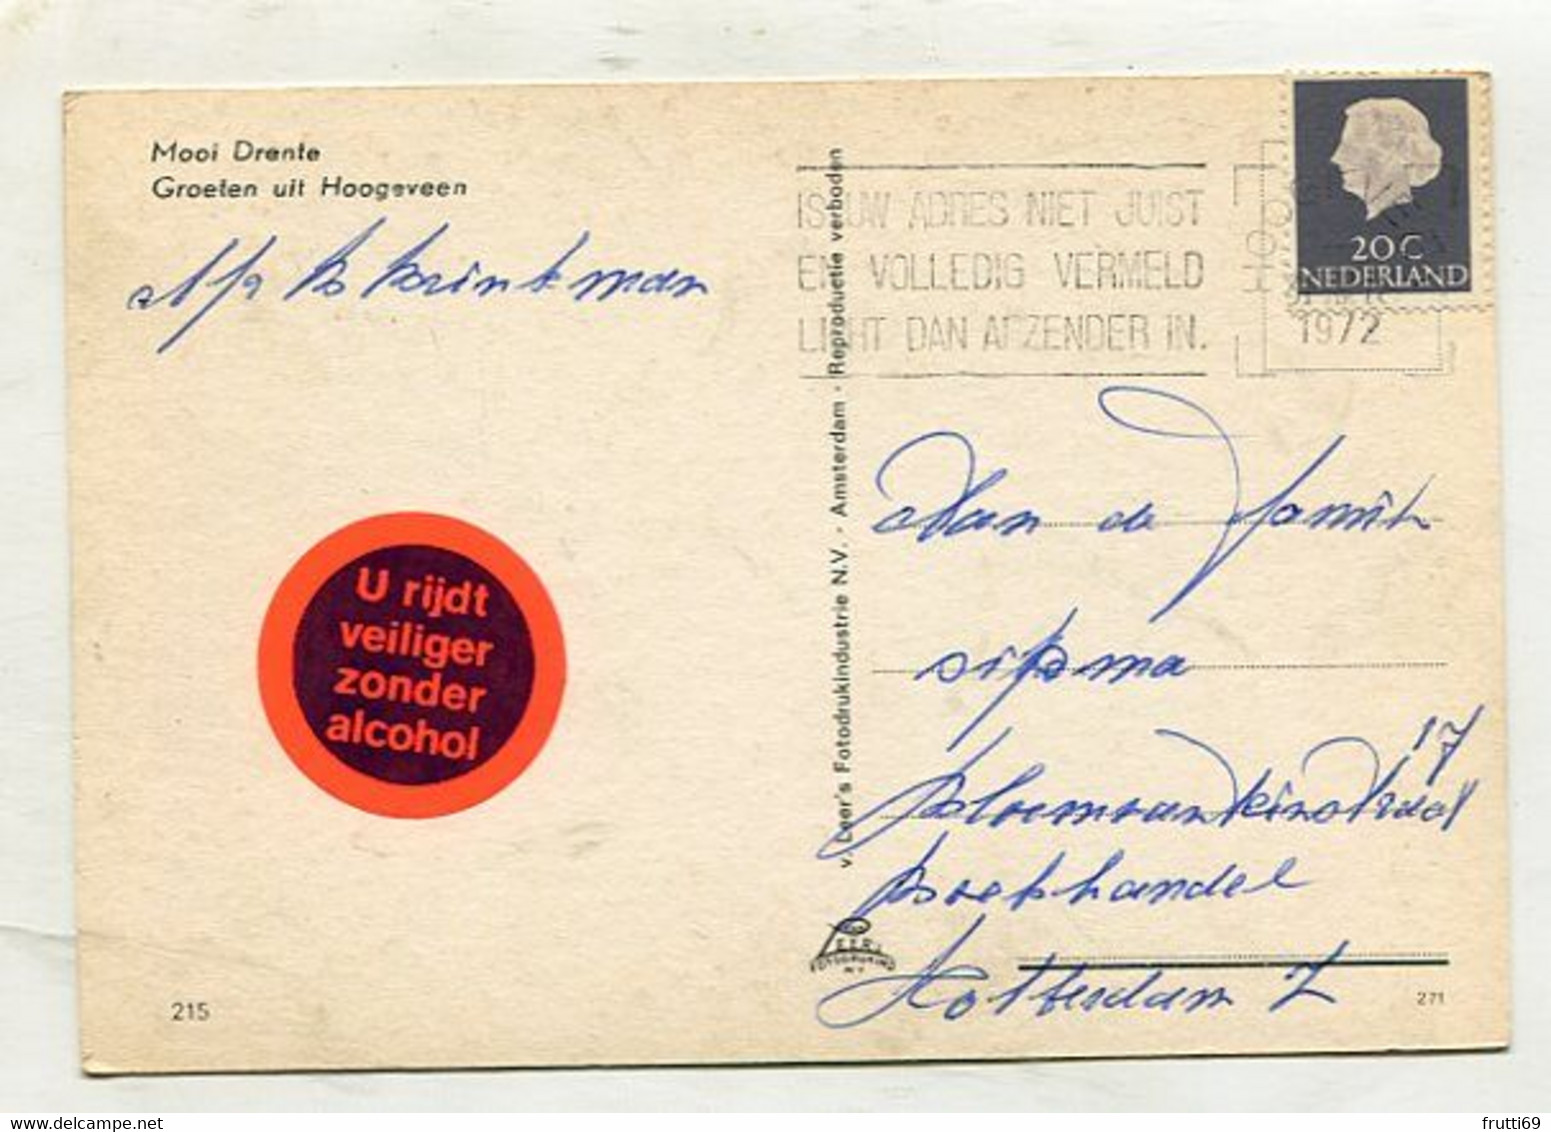 Mooi Drente
Groeten uit Hoogeveen
Brinkman
U rijdt
veiliger
zonder
alcohol
215
v. Leer's Fotodrukindustrie N.V. - Amsterdam - Reproductie verboden
IS UW ADRES NIET JUIST
EN VOLLEDIG VERMELD
LICHT DAN AFZENDER IN.
1972
20C
NEDERLAND
Aan de Famih
Sipma
17
Boekhandel
Rotterdam Z
271
frutti69
delcampe.net